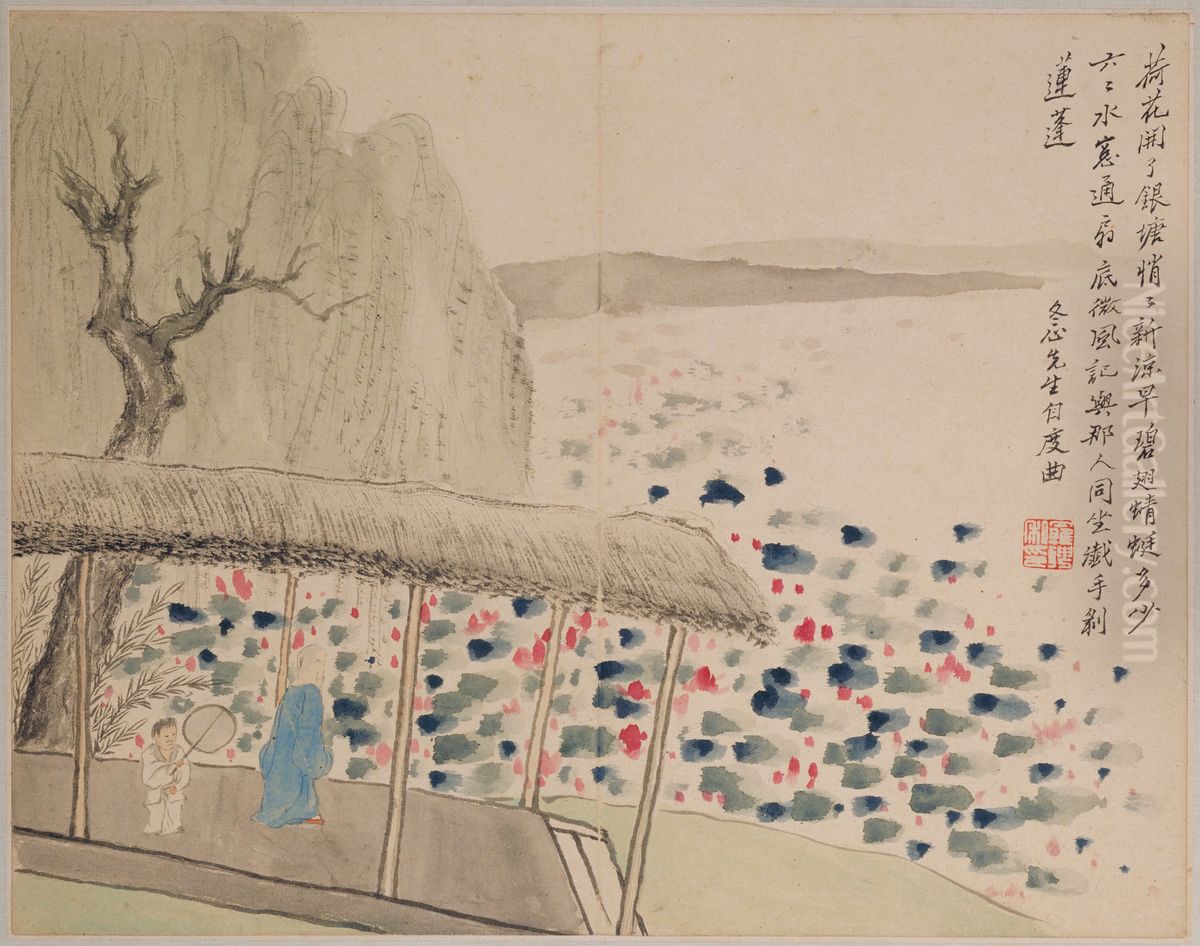 荷花開了銀塘悄〻新涼早碧翅蜻蜓多少
六〻水窓通扇底微風記與那人同坐纖手剝
蓮蓬
冬心先生自度曲
NiceArtGallery.com